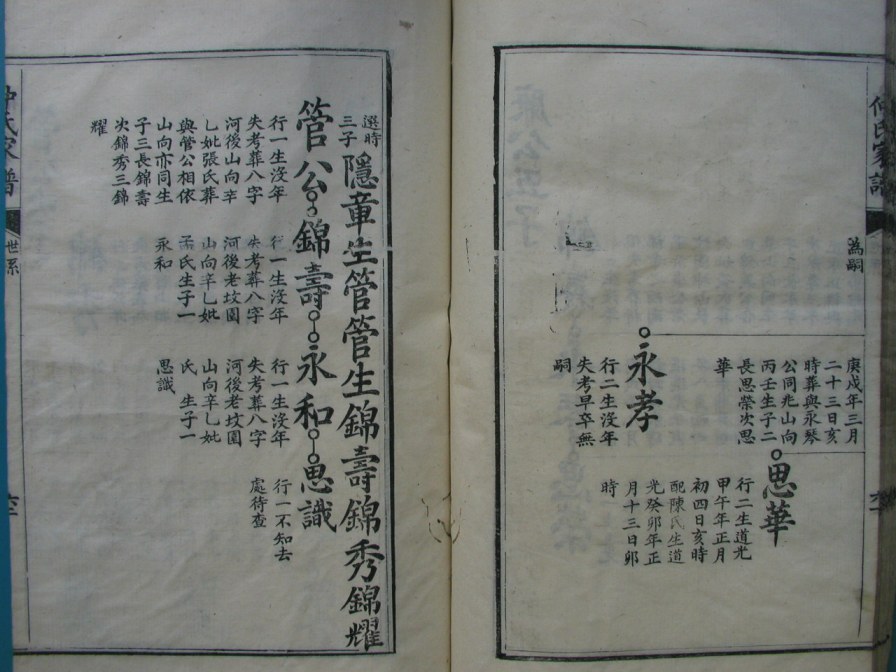 爲嗣
庚戌年三月
二十三日亥
時葬與永琴
公同兆山向
丙壬生子二
長思榮次思
華
永孝
行二生沒年
失考早卒無
嗣
思華
行二生道光
甲午年正月
初四日亥時
配陳氏生道
光癸卯年正
月十三日卯
時
選時
三子
隱章生管管生錦壽錦秀錦耀
管公
行一生沒年
失考葬八字
河後山向辛
乚妣張氏葬
與管公相依
山向亦同生
子三長錦壽
次錦秀三錦
耀
錦壽
行一生沒年
失考葬八字
河後老坟園
山向辛乚妣
孟氏生子一
永和
永和
行一生沒年
失考葬八字
河後老坟園
山向辛乚妣
氏 生子一
思識
思識
行一不知去
處待查
氏家譜
世系